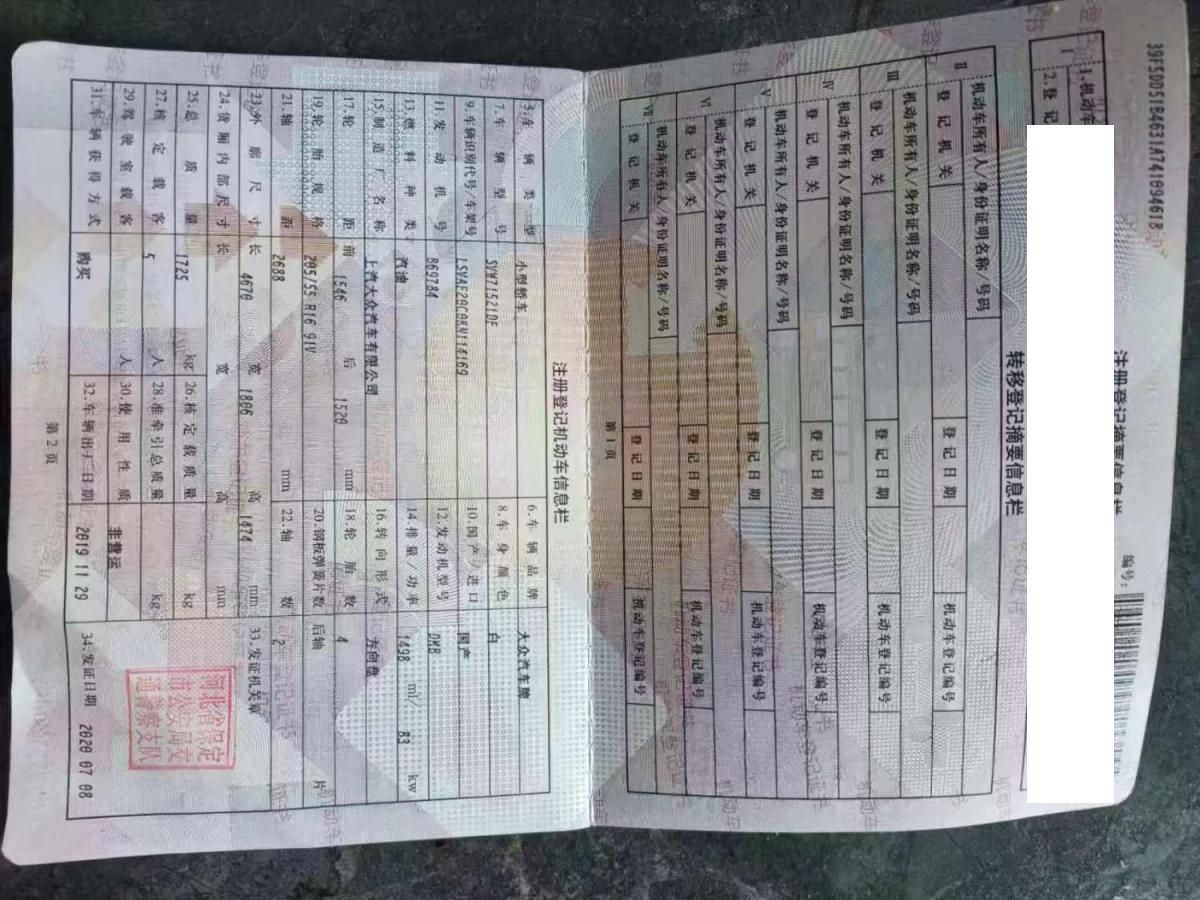 39F5DD51B4631A741094618
注册登记摘要信息栏
编号:
Ⅰ
1.机动车
2.登记
转移登记摘要信息栏
Ⅱ 机动车所有人/身份证明名称/号码
登记机关 登记日期 机动车登记编号
Ⅲ 机动车所有人/身份证明名称/号码
登记机关 登记日期 机动车登记编号
Ⅳ 机动车所有人/身份证明名称/号码
登记机关 登记日期 机动车登记编号
Ⅴ 机动车所有人/身份证明名称/号码
登记机关 登记日期 机动车登记编号
Ⅵ 机动车所有人/身份证明名称/号码
登记机关 登记日期 机动车登记编号
Ⅶ 机动车所有人/身份证明名称/号码
登记机关 登记日期 机动车登记编号
第1页
注册登记机动车信息栏
5.车辆类型 小型轿车 6.车辆品牌 大众汽车牌
7.车辆型号 SVW71521DF 8.车身颜色 白
9.车辆识别代号/车架号 LSVAF2BC0KN114169 10.国产/进口 国产
11.发动机号 869784 12.发动机型号 DMB
13.燃料种类 汽油 14.排量/功率 1498 ml/ 83 kw
15.制造厂名称 上汽大众汽车有限公司 16.转向形式 方向盘
17.轮距 前 1546 后 1520 mm 18.轮胎数 4
19.轮胎规格 205/55 R16 91V 20.钢板弹簧片数 后轴 片
21.轴距 2688 mm 22.轴数 2
23.外廓尺寸 长 4670 宽 1806 高 1474 mm 33.发证机关章
24.货厢内部尺寸 长 宽 高 mm
25.总质量 1725 kg 26.核定载质量 kg
27.核定载客 5 人 28.准牵引总质量 kg
29.驾驶室载客 人 30.使用性质 非营运
31.车辆获得方式 购买 32.车辆出厂日期 2019 11 29 34.发证日期 2020 07 08
河北省保定
市公安局交
通警察支队
第2页